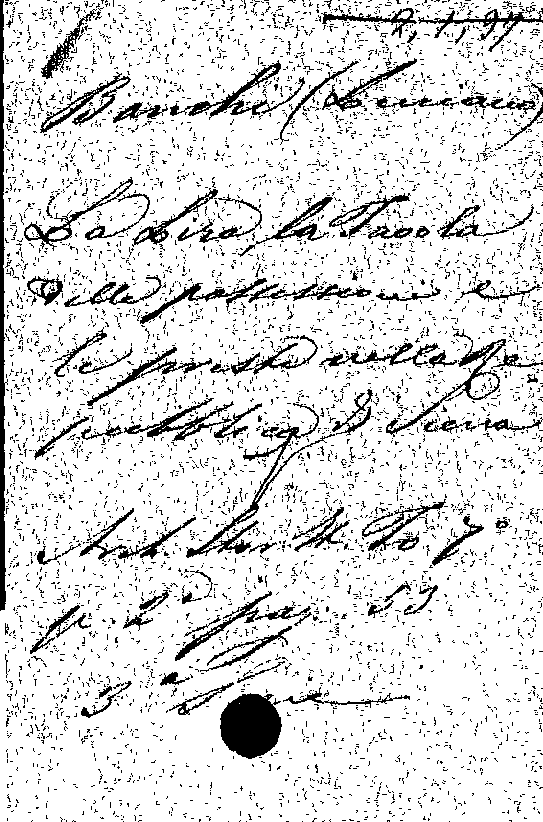 2, 1, 97
Banchi (Luciano)
La Lira, la Tavola
delle possessioni e
le preste nella Re
pubblica di Siena
Arch. Stor. It. To. 7°
p. 2ª pag. 53
3ª Serie